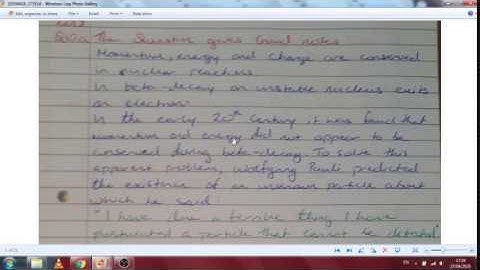 Windows Live Photo Gallery
Q20a The Question gives Good notes
Momentum, energy and charge are conserved
in nuclear reactions
In beta-decay an unstable nucleus emits
an electron
In the early 20th Century it was found that
momentum and energy did not appear to be
conserved during beta-decay. To solve this
apparent problem, Wolfgang Pauli predicted
the existence of an unknown particle about
which he said
"I have done a terrible thing I have
postulated a particle that cannot be detected"
EN